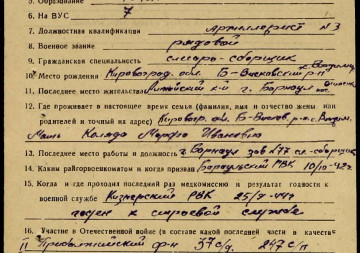 5. Образование
6. На ВУС 7
7. Должностная квалификация Артиллерист №3
8. Военное звание рядовой
9. Гражданская специальность слесарь-сборщик
10. Место рождения Кировоград. обл. Б-Висковский р-н
11. Последнее место жительства Алтайский к-й г. Барнаул
12. Где проживает в настоящее время семья (фамилия, имя и отчество жены или
родителей и точный их адрес) Кировогр. обл. Б-Висков. р-н
Мать Коляда Мария Ивановна
13. Последнее место работы и должность г. Барнаул зав 177 сл-сборщик
14. Каким райгорвоенкоматом и когда призван РВК 10/10-42г
15. Когда и где проходил последний раз медкомиссию и результат годности к
военной службе Кизнерский РВК 25/8-44г
годен к строевой службе
16. Участие в Отечественной войне (в составе какой последней части, в качестве
II Прибалтийский ф-н 37 с/д. 247 с/п